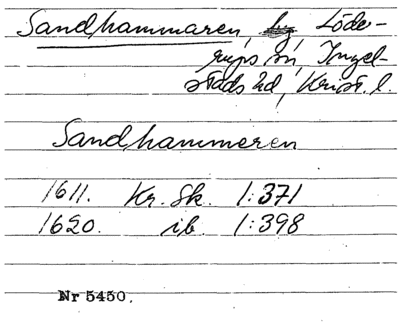 Sandhammaren, by Löde-
rups sn, Ingel-
stads hd, Krist. l.
Sandhammeren
1611. Kr. Sk. 1:371
1620. ib. 1:398
Nr 5450.